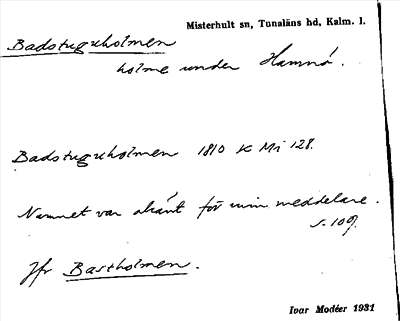 Misterhult sn, Tunaläns hd, Kalm. l.
Badstuguholmen
holme under Hamnö.
Badstuguholmen 1810 K Mi 128.
Namnet var okänt för min meddelare.
s. 109.
Jfr Bastholmen.
Ivar Modéer 1931